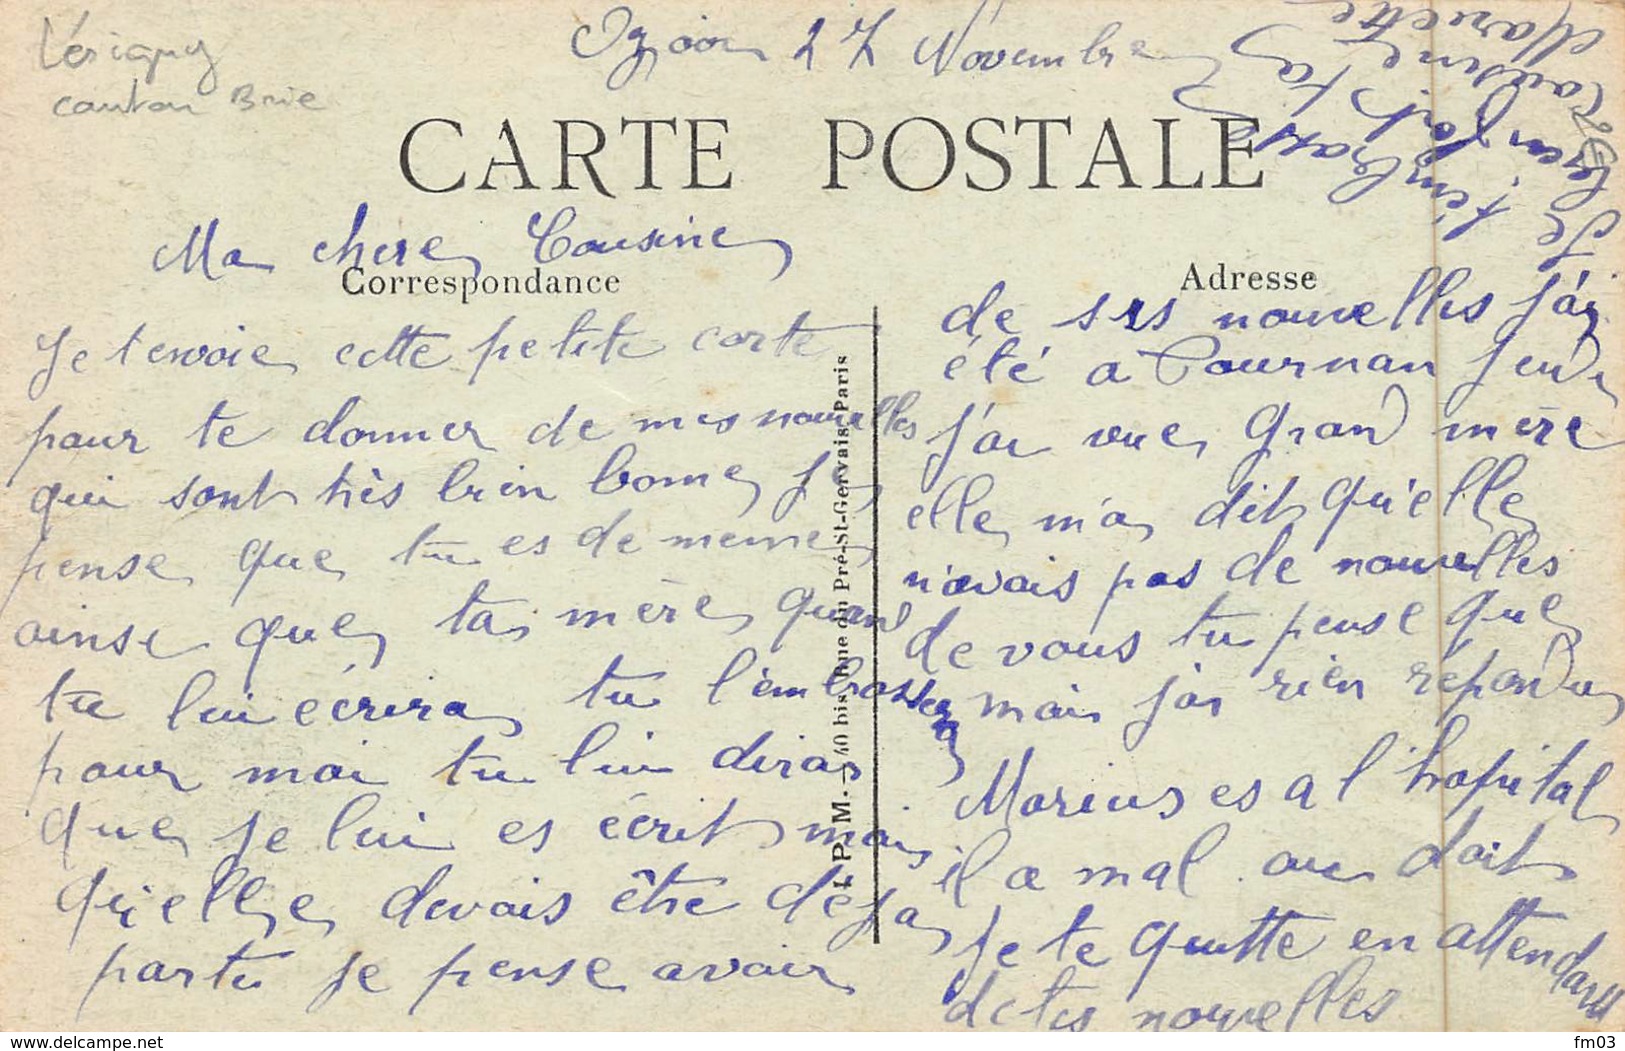 Lésigny
canton Brie
Ozoir 27 Novembre
CARTE POSTALE
Ma chere Cousine
Correspondance
Je tenvoie cette petite carte
pour te donner de mes nouvelles
qui sont très bien bonne Je
pense que tu es de meme
ainse que ta mère quand
tu lui écrira tu l'embrassera
pour moi tu lui diras
que je lui es écrit mais
qu'elle devais être déja
partu je pense avoir
L.P.M. - 40 bis, Rue du Pré-St-Gervais, Paris
Adresse
de ses nouvelles J'ai
été a Tournan Jeudi
j'ai vue Grand mère
elle m'a dit qu'elle
n'avais pas de nouvelles
de vous tu pense que
mais j'ai rien repondu
Marius es a l'hopital
il a mal au doit
Je te quitte en attendant
de tes nouvelles
Je t'embrasse
bien fort Ta
Cousine
Mariette
delcampe.net
fm03